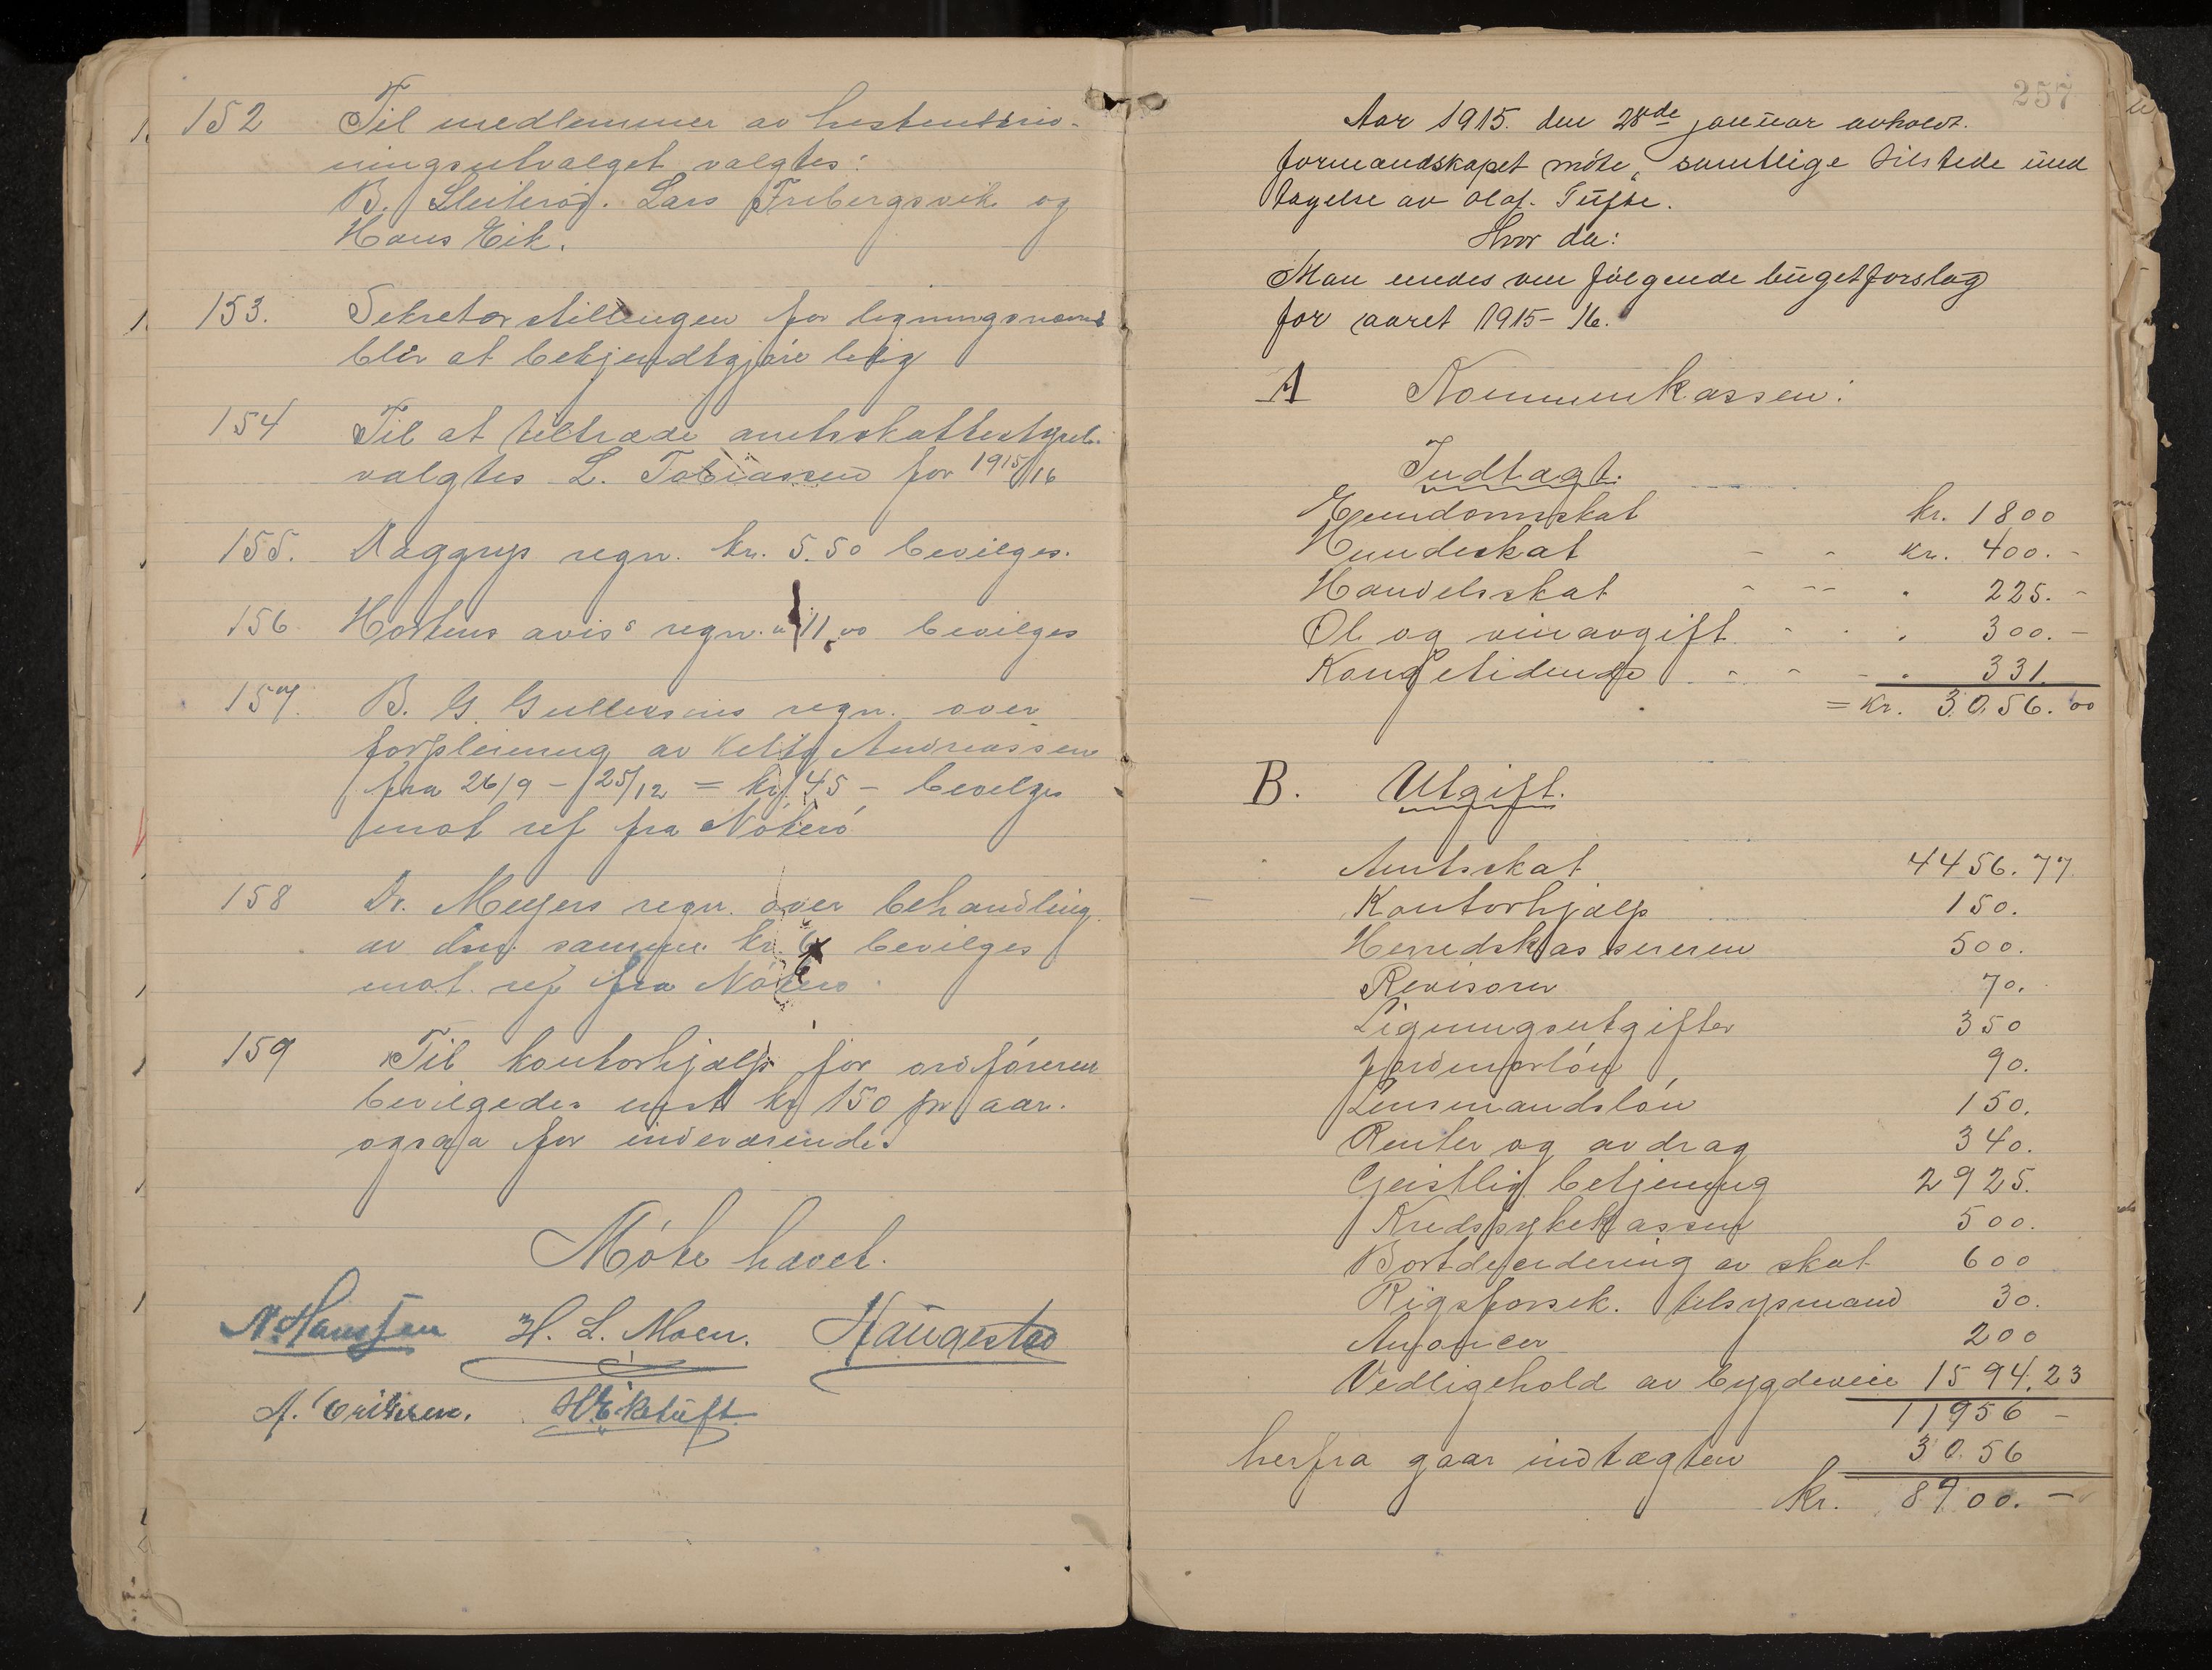 152 Til medlemmer av hesteutskriv-
ningsutvalget valgtes:
B. Sleiterød. Lars Frebergsvik og
Hans Eik.
153. Sekretærstillingen for ligningsnævnd
blir at bekjendtgjøre ledig
154 Til at tiltræde amtsskattestyret
valgtes L. Tobiassen for 1915/16
155. Daggrys regn. kr. 5.50 bevilges.
156 Hortens avis's regn. " 11,00 bevilges
157. B. G. Gullersens regn. over
forpleining av Andreassen
fra 26/9 - 25/12 = kr. 45 - bevilges
mot ref fra Nøtterø
158 Dr. Meyers regn. over behandling
av samme kr. 6 bevilges
mot ref fra Nøtterø
159 Til kontorhjælp for ordføreren
bevilgedes inst kr 150 pr aar.
ogsaa for indeværende.
Møte hævet.
N. Hanssen H. L. Moen. Haugestad
A. Eriksen. H Eketuft
257
Aar 1915. den 28de januar avholdt.
formandskapet møte, samtlige tilstede und
tagelse av Olaf. Tufte.
Hvor da:
Man enedes om følgende bugetforslag
for aaret 1915-16.
A Kommunekassen:
Indtægt.
Eiendomsskat kr. 1800
Hundeskat - - kr. 400. -
Handelsskat - -- . 225. -
Øl og vinavgift - . . 300. -
Kongetidende - - - . 331.
= Kr. 3056.00
B. Utgift.
Amtsskat 4456.77
Kontorhjælp 150.
Herredskassereren 500.
Revisorer 70.
Ligningsutgifter 350
Jordmorløn 90.
Lensmandsløn 150.
Renter og avdrag 340.
Geistlig betjening 2925.
Kredssykekassen 500.
Bortdefindering av skat 600
Rigsforsik. tilsynsmand 30.
Anoncer 200
Vedligehold av bygdeveie 1594.23
11956 -
herfra gaar indtægten 3056
kr. 8900. -